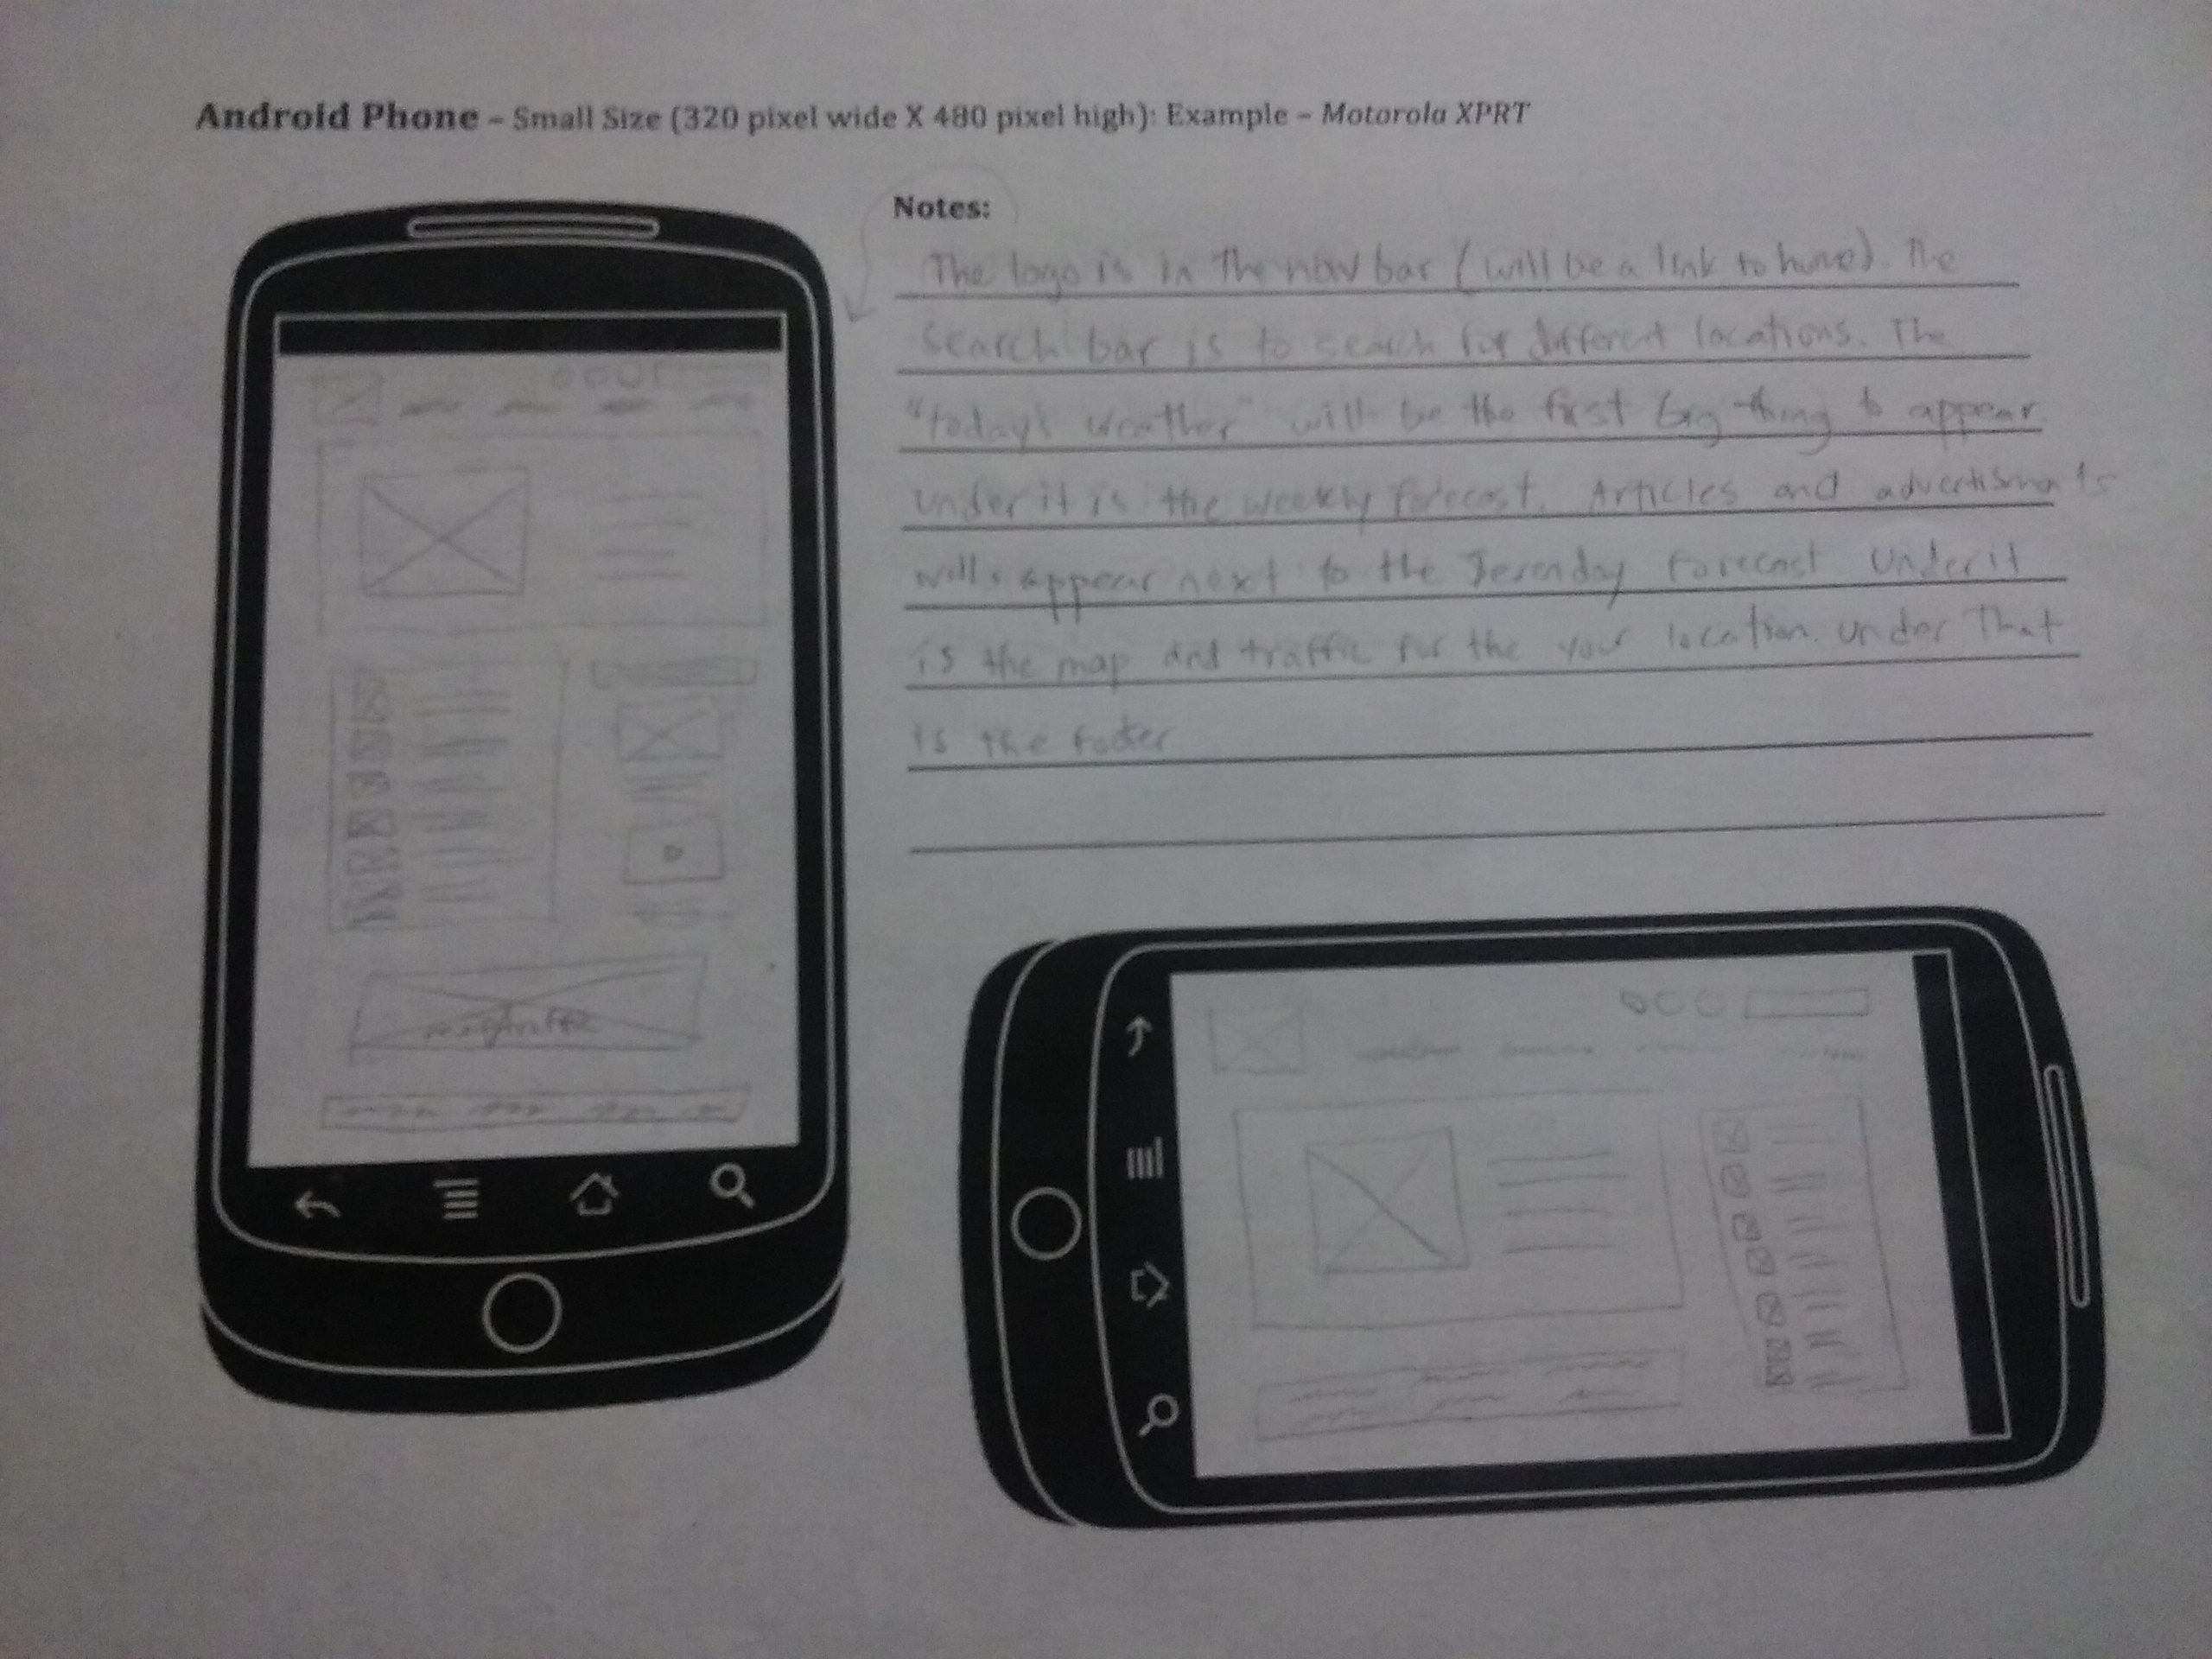 Android Phone – Small Size (320 pixel wide X 480 pixel high): Example – Motorola XPRT
Notes:
The logo is in the nav bar (will be a link to home). The
search bar is to search for different locations. The
"today's weather" will be the first big thing to appear.
under it is the weekly forecast. Articles and advertisments
will appear next to the Sevenday forecast. Under it
is the map and traffic for the your location. under That
is the footer
map/traffic